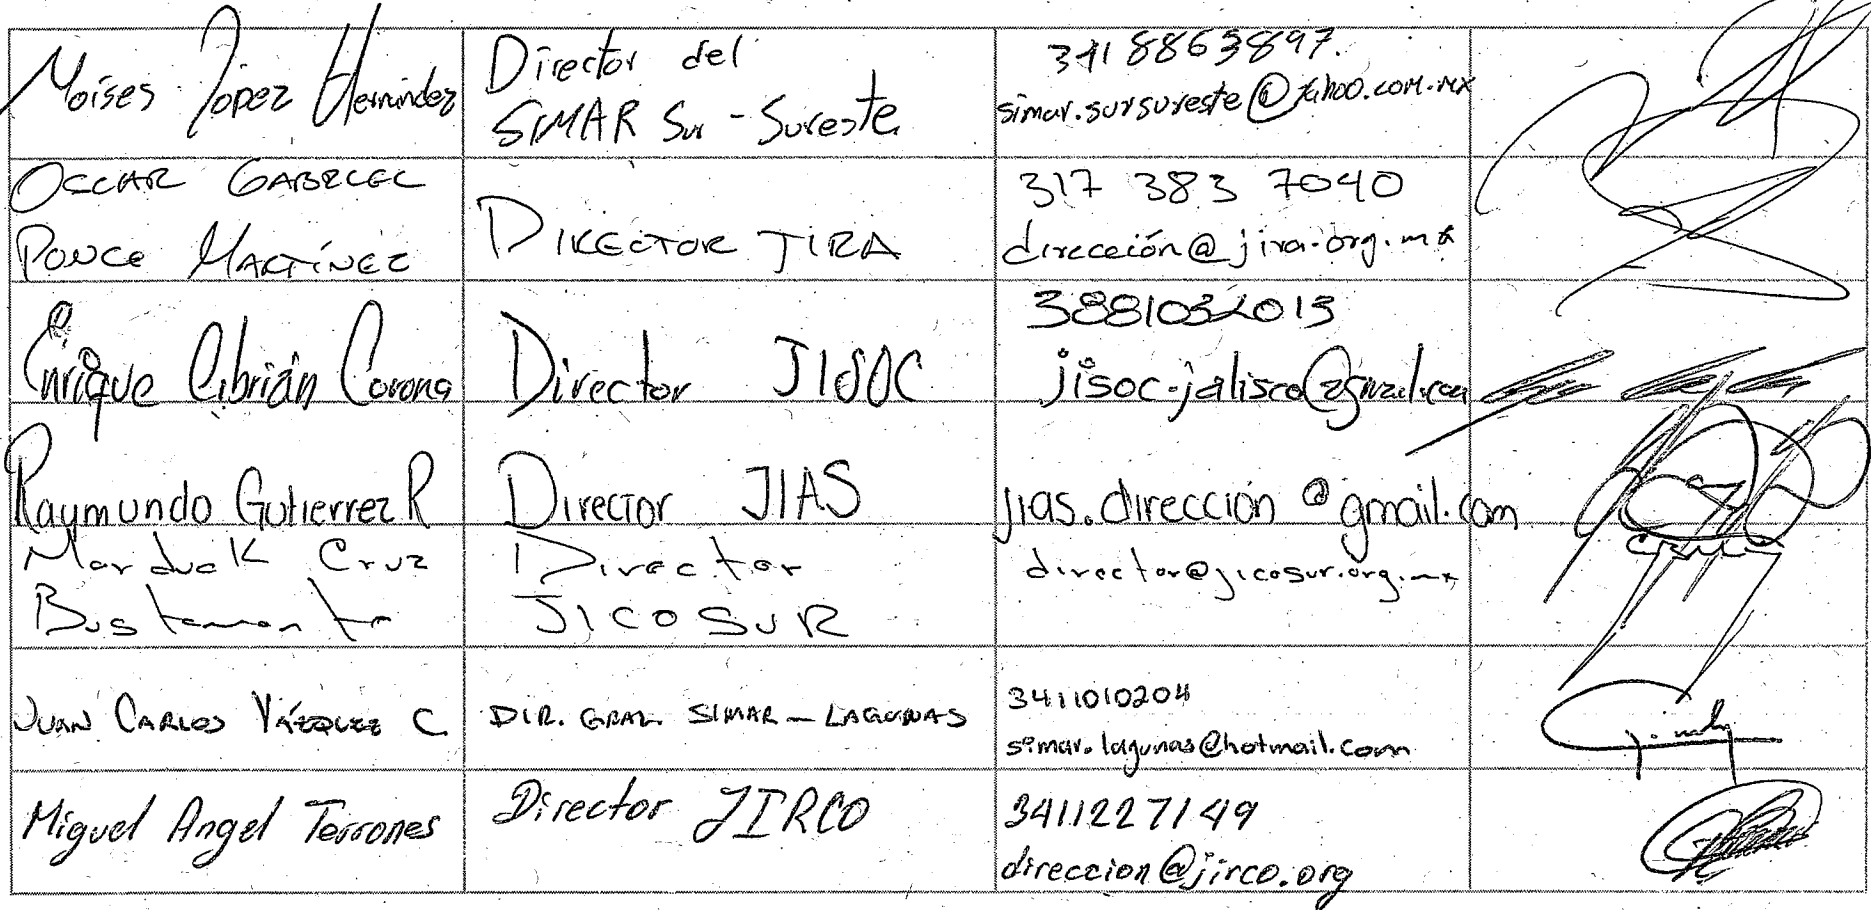 Moises López Hernández
Director del
SIMAR Sur-Sureste
3418863897.
simar.sursureste@yahoo.com.mx
OSCAR GABRIEL
PONCE MARTÍNEZ
DIRECTOR JIRA
317 383 7040
dirección@jira.org.mx
Enrique Cibrián Corona
Director JISOC
3881032013
jisoc.jalisco@gmail.com
Raymundo Gutierrez R
Director JIAS
jias.dirección@gmail.com
Marduk Cruz
Bustamante
Director
JICOSUR
director@jicosur.org.mx
JUAN CARLOS VÁZQUEZ C
DIR. GRAL. SIMAR-LAGUNAS
3411010204
simar.lagunas@hotmail.com
Miguel Angel Terrones
Director JIRCO
3411227149
direccion@jirco.org